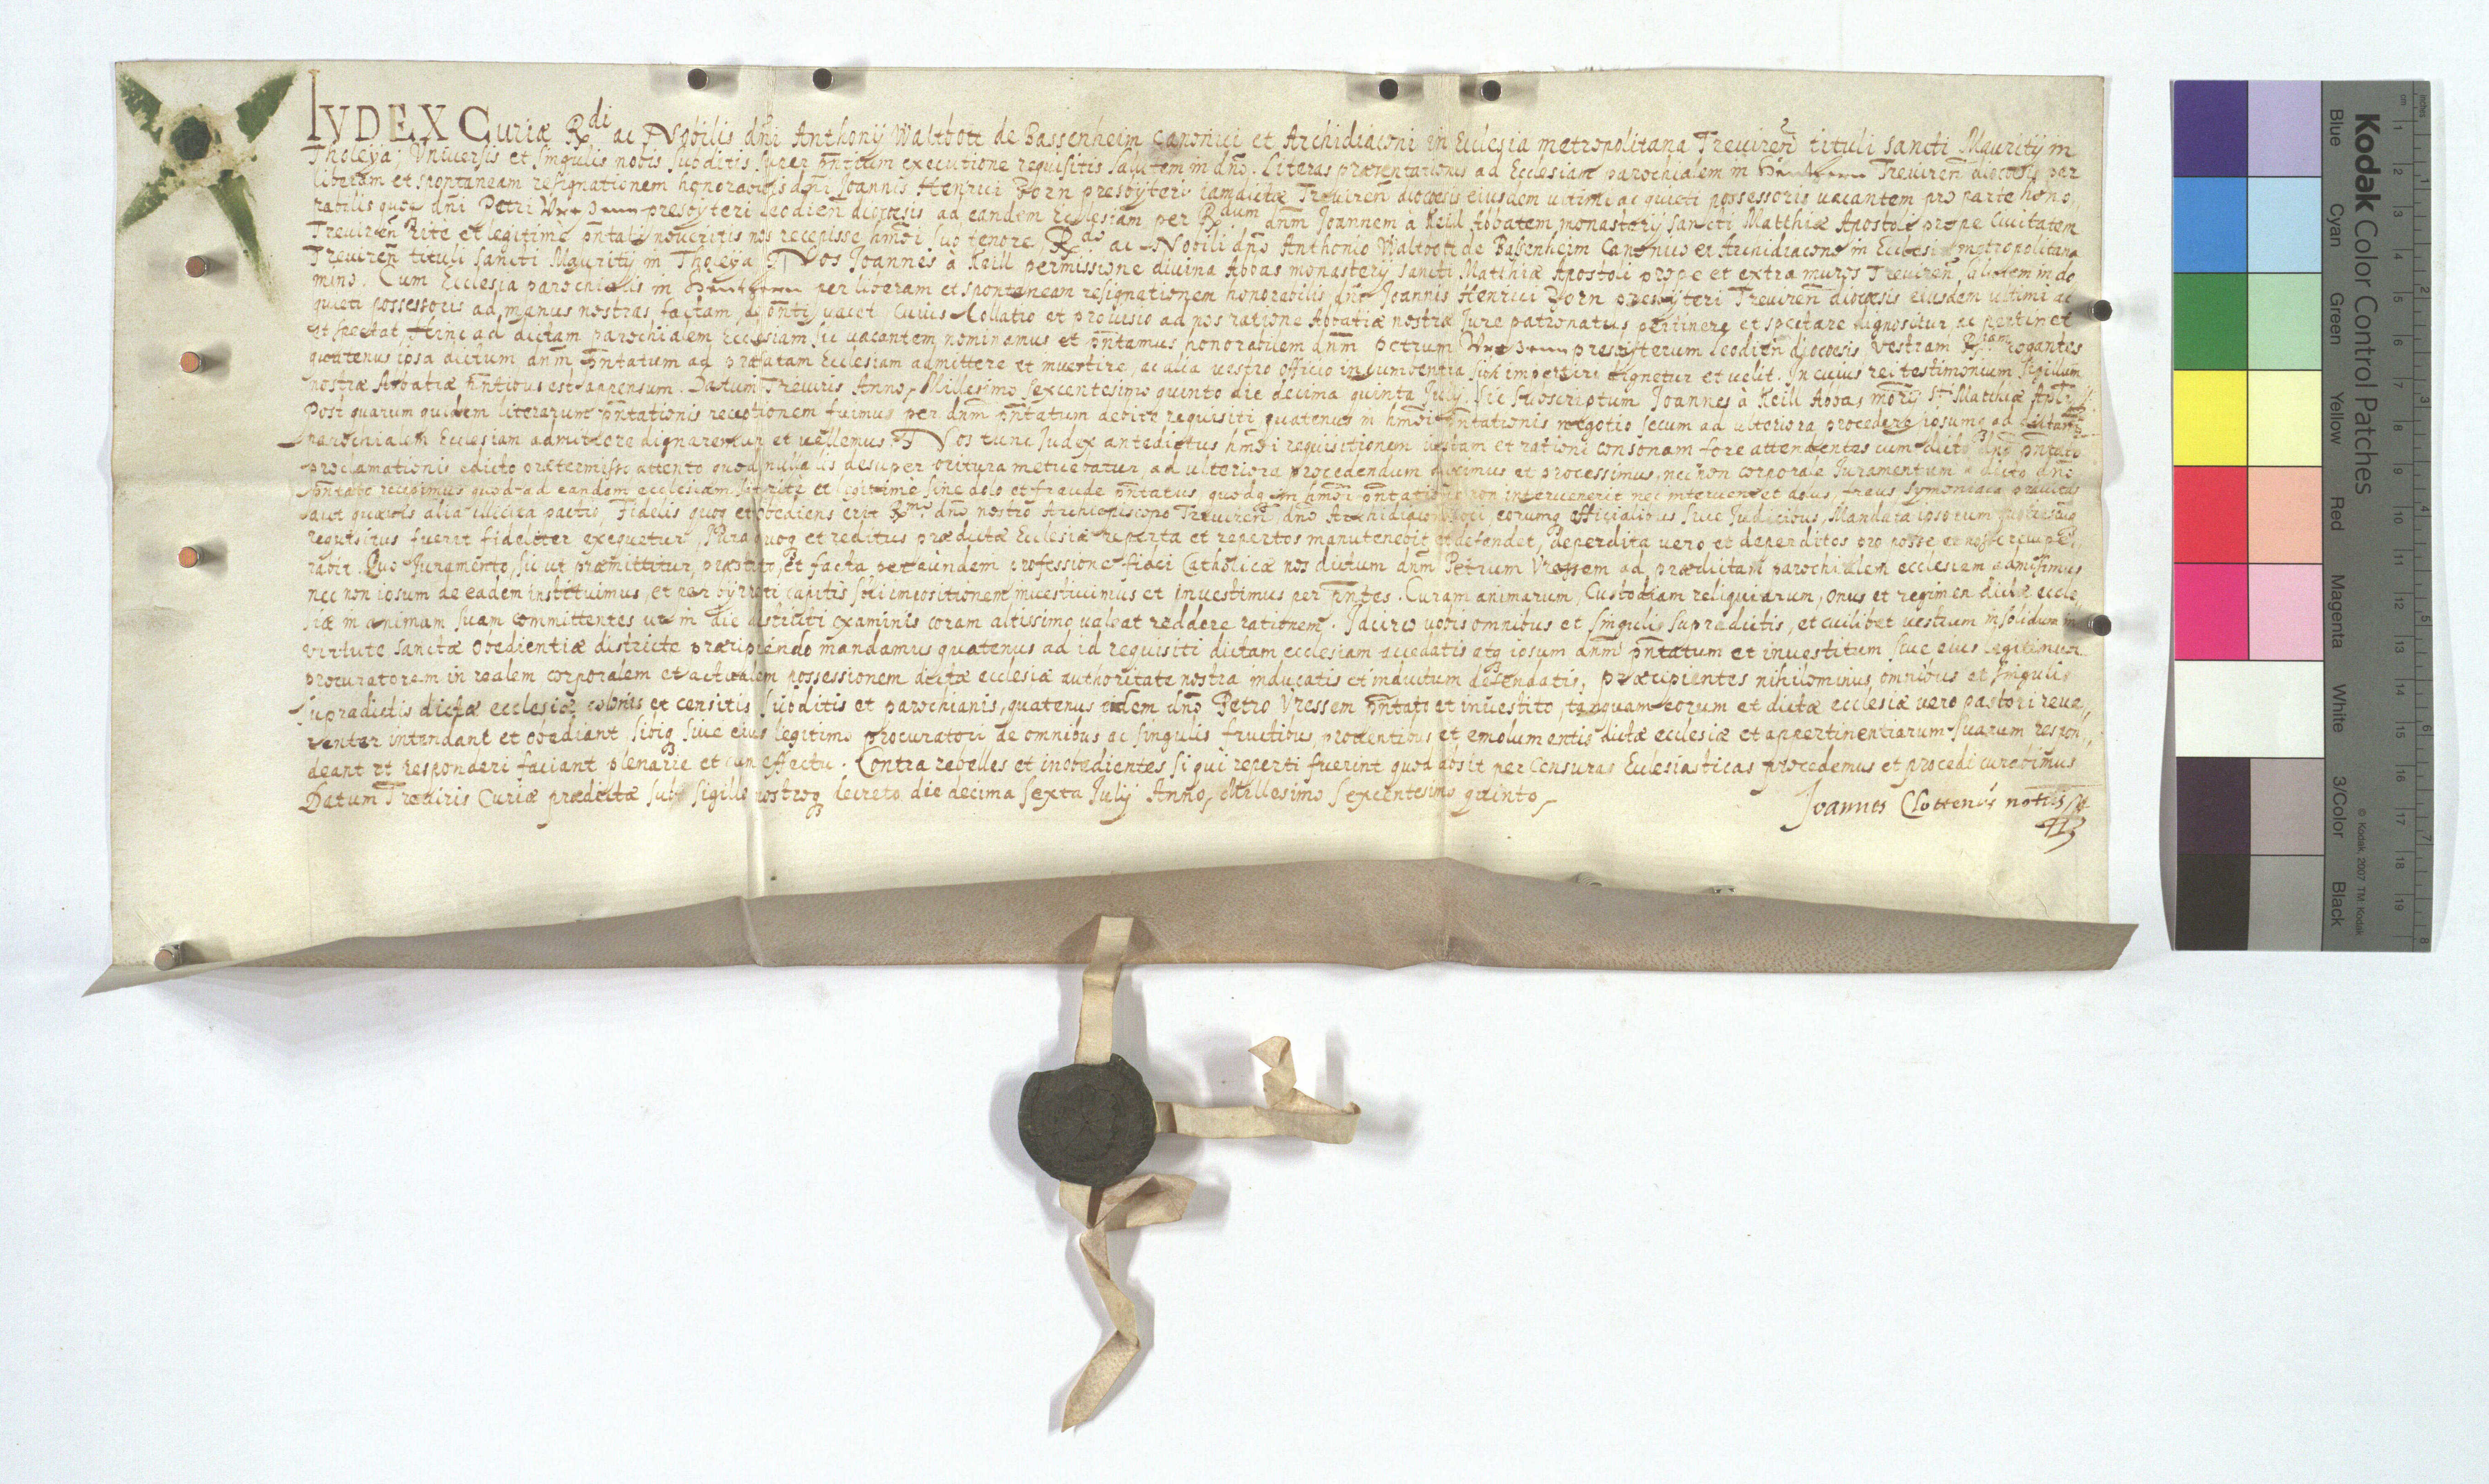 IVDEX Curiæ R.di ac Nobilis dñi Anthonij Waltbott de Bassenheim Canonici et Archidiaconi in Ecclesia metropolitana Treviren̄ tituli sancti Mauritij in
Tholeya; Vniversis et singulis nobis subditis super p̄ntium executione requisitis salutem in dño. Literas præsentationis ad Ecclesiam parochialem in Treviren̄ diocesis per
liberam et spontaneam resignationem honorabilis dñi Joannis Henrici Zorn presbyteri iamdictæ Treviren̄ diocesis eiusdem ultimi ac quieti possessoris vacantem pro parte hono,
rabilis quoq dñi Petri presbyteri Leodien̄ diocesis ad eandem ecclesiam per R.dum dñm Joannem à Keill Abbatem monasterij sancti Matthiæ Apostoli prope Civitatem
Treviren̄ Rite et legitime p̄ntati noveritis nos recepisse hmo̅i sub tenore R.do ac Nobili dño Anthonio Waltbott de Bassenheim Canonico et Archidiacono in Ecclesia metropolitana
Treviren̄ tituli sancti Mauritij in Tholeya Nos Joannes à Keill permissione divina Abbas monasterij sancti Matthiæ Apostoli prope et extra muros Treviren̄, salutem in do
mino. Cum Ecclesia parochialis in per liberam et spontaneam resignationem honorabilis dñi Joannis Henrici Zorn presbyteri Treviren̄ diocesis eiusdem ultimi ac
quieti possessoris ad manus nostras factam, de p̄nti vacet, Cuius Collatio et provisio ad nos ratione Abbatiæ nostræ Jure patronatus pertinere et spectare dignositur, ac pertinet
et spectat, Hinc ad dictam parochialem Ecclesiam sic vacantem nominamus et p̄ntamus honorabilem dñm Petrum presbyterum Leodien̄ diocesis, Vestram R.tiam rogantes
quatenus ipsa dictum dñm p̄ntatum ad præfatam Ecclesiam admittere et investire, ac alia vestro officio incumbentia sibi impertiri dignetur et velit. In cuius rei testimonium Sigillum
nostræ Abbatiæ p̄ntibus est appensum. Datum Treviris Anno, Millesimo sexcentesimo quinto die decima quinta Julij. Sic subscriptum Joannes à Keill Abbas S.ti Matthiæ
Post quarum quidem literarum p̄ntationis receptionem fuimus per dñm p̄ntatum debite requisiti quatenus in hmo̅i p̄ntationis negotio secum ad ulteriora procedere ipsumq ad dictam
parochialem Ecclesiam admittere dignaremur et vellemus. Nos tunc Iudex antedictus hmo̅i requisitionem iustam et rationi consonam fore attendentes cum dicto dño p̄ntato
proclamationis edicto prætermisso attento quod nulla lis desuper oritura metuebatur, ad ulteriora procedendum duximus et processimus, nec non corporale Iuramentum a dicto dño
p̄ntato recepimus quod ad eandem ecclesiam sit rite et legitime sine dolo et fraude p̄ntatus, quodq in hmo̅i p̄ntatione non intervenerit nec interveniet dolus, fraus Symoniaca pravitas
aut quævis alia illicita pactio, Fidelis quoq et obediens erit R.mo dño nostro Archiepiscopo Treviren̄, dño Archidiacono loci, eorumq officialibus sive Judicibus, Mandata ipsorum
requisitus fuerit fideliter exequetur, Jura quoq et reditus prædictæ Ecclesiæ reperta et repertos manutenebit et defendet, deperdita vero et deperditos pro posse et nosse recupe,
rabit. Quo Juramento, sic ut præmittitur, præstito, et facta per eundem professione fidei Catholicæ nos dictum dñm Petrum Vressem ad prædictam parochialem ecclesiam admisimus
nec non ipsum de eadem instituimus, et per byrreti capitis sibi impositionem investivimus et investimus per p̄ntes. Curam animarum, Custodiam reliquiarum, Onus et regimen dictæ eccle,
siæ in animam suam committentes ut in die districti examinis coram altissimo valeat reddere rationem. Idcirco vobis omnibus et singulis supradictis, et cuilibet vestrum in solidum in
virtute sanctæ obedientiæ districte præcipiendo mandamus quatenus ad id requisiti dictam ecclesiam accedatis atq ipsum dñm p̄ntatum et investitum sive eius legitimum
procuratorem in realem corporalem et actualem possessionem dictæ ecclesiæ authoritate nostra inducatis et inductum defendatis, Præcipientes nihilominus omnibus et singulis
supradictis dictæ ecclesiæ colonis et censitis subditis et parochianis, quatenus eidem dño Petro Vressem p̄ntato et investito, tanquam eorum et dictæ ecclesiæ vero pastori reve,,
renter intendant et obediant sibiq sive eius legitimo procuratori de omnibus ac singulis fructibus, proventibus et emolumentis dictæ ecclesiæ et appertinentiarum suarum respon,,
deant et responderi faciant plenarie et cum effectu. Contra rebelles et inobedientes si qui reperti fuerint quod absit per Censuras Ecclesiasticas procedemus et procedi curabimus
Datum Treviris Curiæ prædictæ sub sigillo nostroq decreto die decima sexta Julij Anno, Millesimo Sexcentesimo quinto,
Joannes Clottenus
Kodak Color Control Patches
Blue Cyan Green Yellow Red Magenta White 3/Color Black
© Kodak, 2007 TM: Kodak
inches 1 2 3 4 5 6 7 8
cm 1 2 3 4 5 6 7 8 9 10 11 12 13 14 15 16 17 18 19